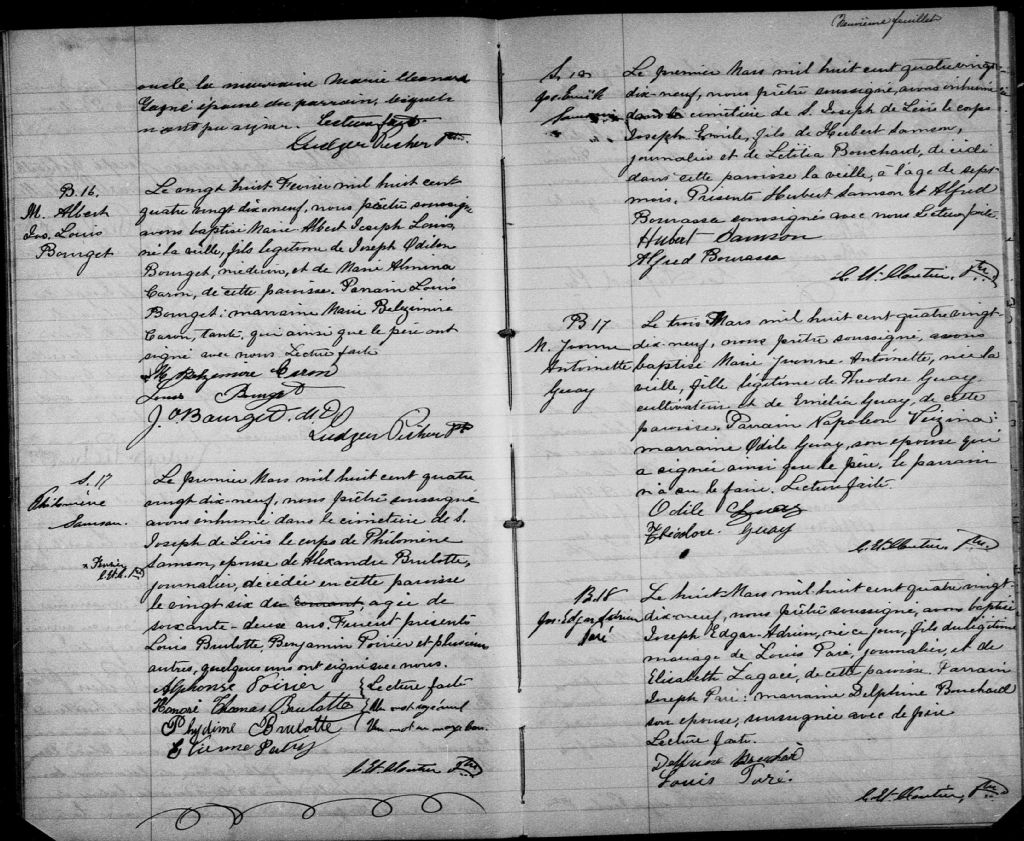 oncle, la marraine Marie Eleonard
Gagné épouse du parrain, lesquels
n'ont pu signer. Lecture faite.
Ludger Pischer Ptre.
B. 16.
M. Albert
Jos. Louis
Bourget
Le vingt huit Fevrier mil huit cent
quatre vingt dix-neuf, nous prêtre soussigné
avons baptisé Marie Albert Joseph Louis,
né la veille, fils legitime de Joseph Odilon
Bourget, medecin, et de Marie Almina
Caron, de cette paroisse. Parrain Louis
Bourget; marraine Marie Belzimire
Caron, tante, qui ainsi que le père ont
signé avec nous Lecture faite
M. Belzemire Caron
Louis Bourget
J. O. Bourget. M.D.
Ludger Pischer Ptr
S. 17
Philomène
Samson.
x Fevrier
Le premier Mars mil huit cent quatre
vingt dix-neuf, nous prêtre soussigné
avons inhumé dans le cimetière de S.
Joseph de Lévis le corps de Philomène
Samson, epouse de Alexandre Brulotte,
journalier, decédée en cette paroisse
le vingt six du courant, agée de
soixante-deux ans. Furent presents
Louis Brulotte, Benjamin Poirier et plusieurs
autres, quelques uns ont signé avec nous.
Alphonse Poirier { Lecture faite
Honoré Thomas Brulotte { Un mot rayé nul
Phydime Brulotte Un mot en marge bon.
Etienne Patry
Ptre
Deuxième feuillet
S. 18
Jos. Emile
Samson
Le premier Mars mil huit cent quatre vingt-
dix-neuf, nous prêtre soussigné, avons inhumé
dans le cimetière de S. Joseph de Lévis le corps
Joseph Emile, fils de Hubert Samson,
journalier et de Letitia Bouchard, decédé
dans cette paroisse la veille, à l'age de sept
mois. Presents Hubert Samson et Alfred
Bourassa soussignés avec nous Lecture faite.
Hubert Samson
Alfred Bourassa
Ptre
B 17
M. Yvonne
Antoinette
Guay
Le trois Mars mil huit cent quatre vingt-
dix-neuf, nous prêtre soussigné, avons
baptisé Marie Yvonne Antoinette, née la
veille, fille légitime de Théodore Guay,
cultivateur et de Emélia Guay, de cette
paroisse. Parrain Napoléon Vézina:
marraine Odile Guay, son epouse qui
a signée ainsi que le père, le parrain
n'a su le faire. Lecture faite.
Odile Guay
Théodore. Guay
Ptre.
B. 18
Jos. Edgar Adrien
Paré
Le huit Mars mil huit cent quatre vingt-
dix-neuf, nous prêtre soussigné, avons baptisé
Joseph Edgar Adrien, né ce jour, fils du légitime
mariage de Louis Paré, journalier, et de
Elisabeth Lagacé, de cette paroisse. Parrain
Joseph Paré: marraine Delphine Bouchard
son epouse, soussignée avec le père
Lecture faite.
Delphine Bouchard
Louis Paré.
Ptre